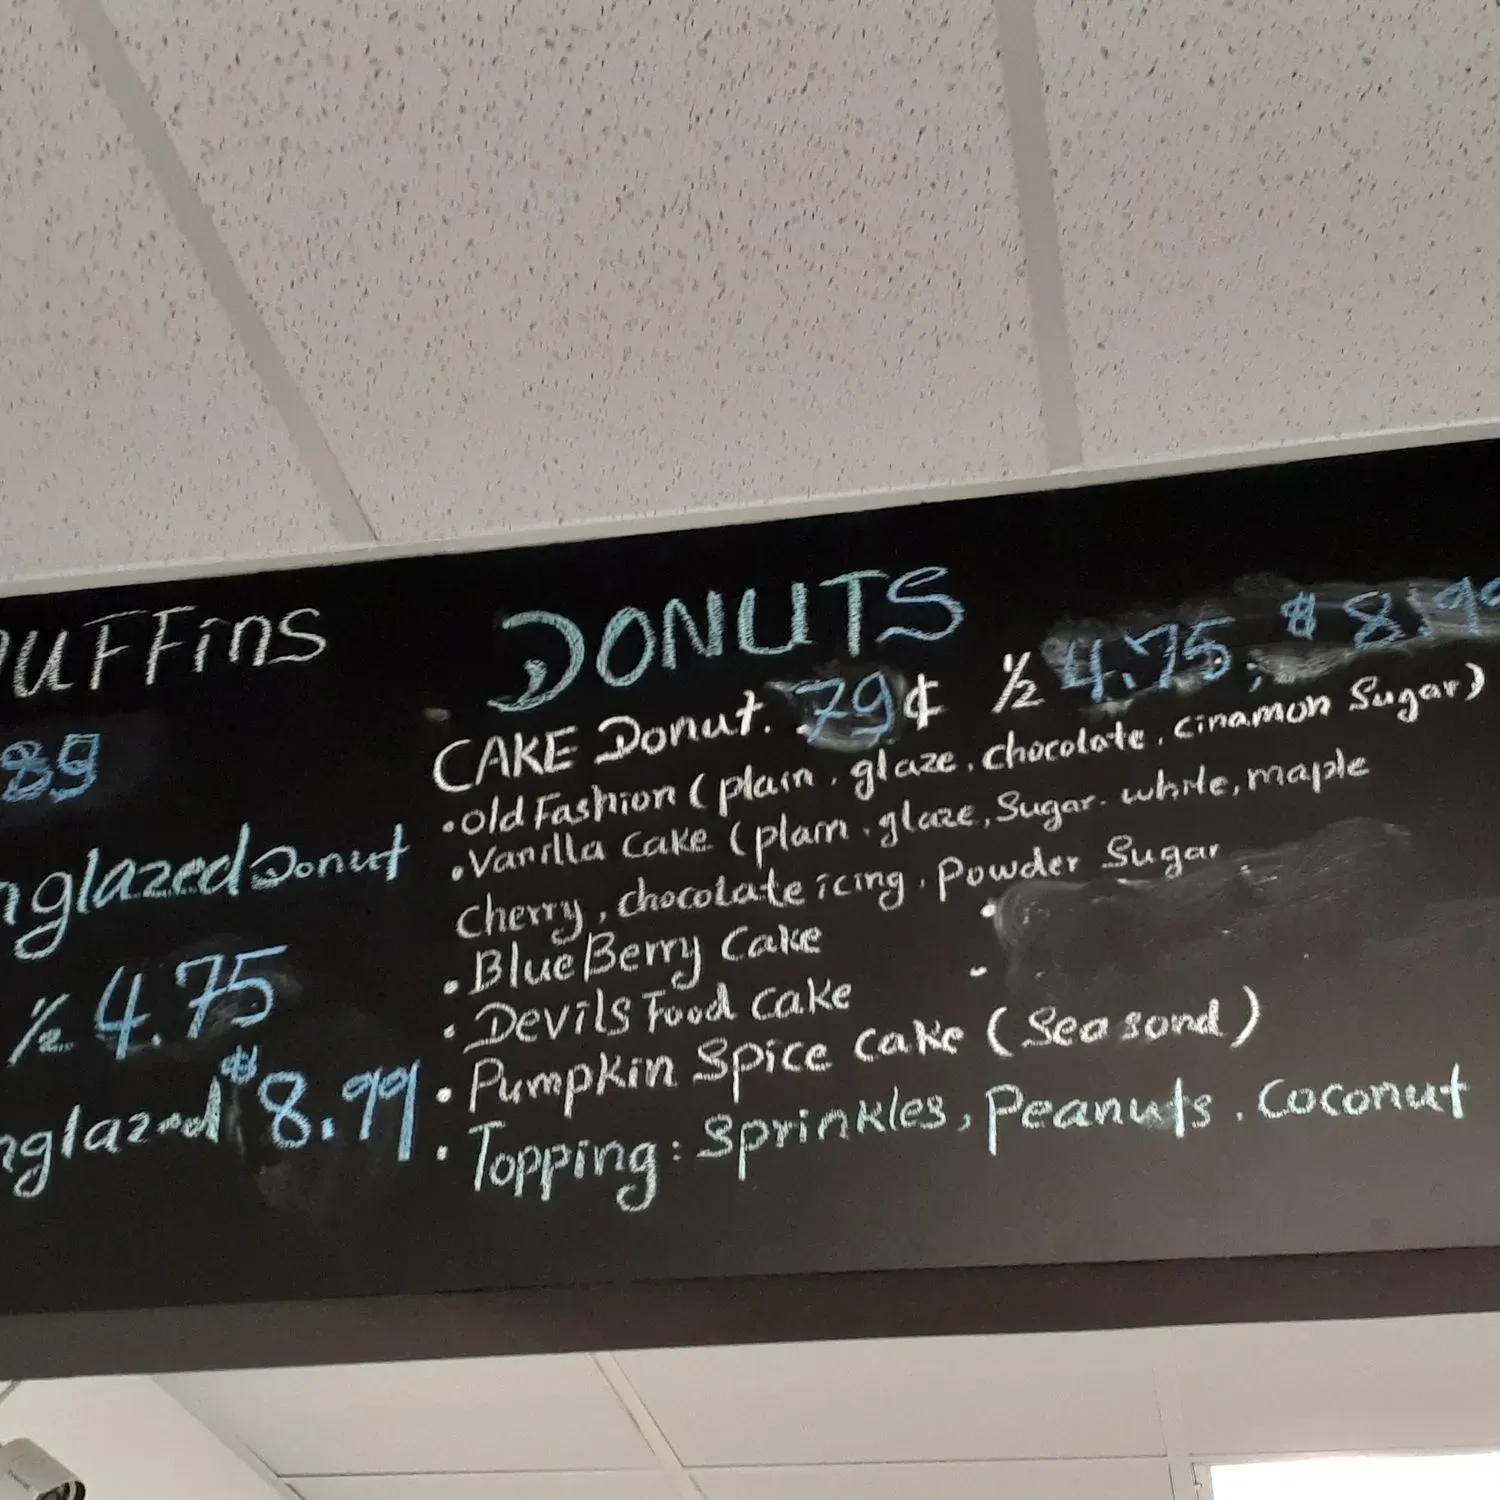 UFFins
89
nglazed Donut
½ 4.75
nglazed $8.99
DONUTS
CAKE Donut. .79¢ ½ 4.75, $8.99
• Old Fashion (plain, glaze, chocolate, cinamon Sugar)
• Vanilla Cake (plain, glaze, Sugar. white, maple
cherry, chocolate icing, Powder Sugar
• BlueBerry Cake
• Devils Food Cake
• Pumpkin Spice Cake (Seasond)
• Topping: Sprinkles, Peanuts, Coconut